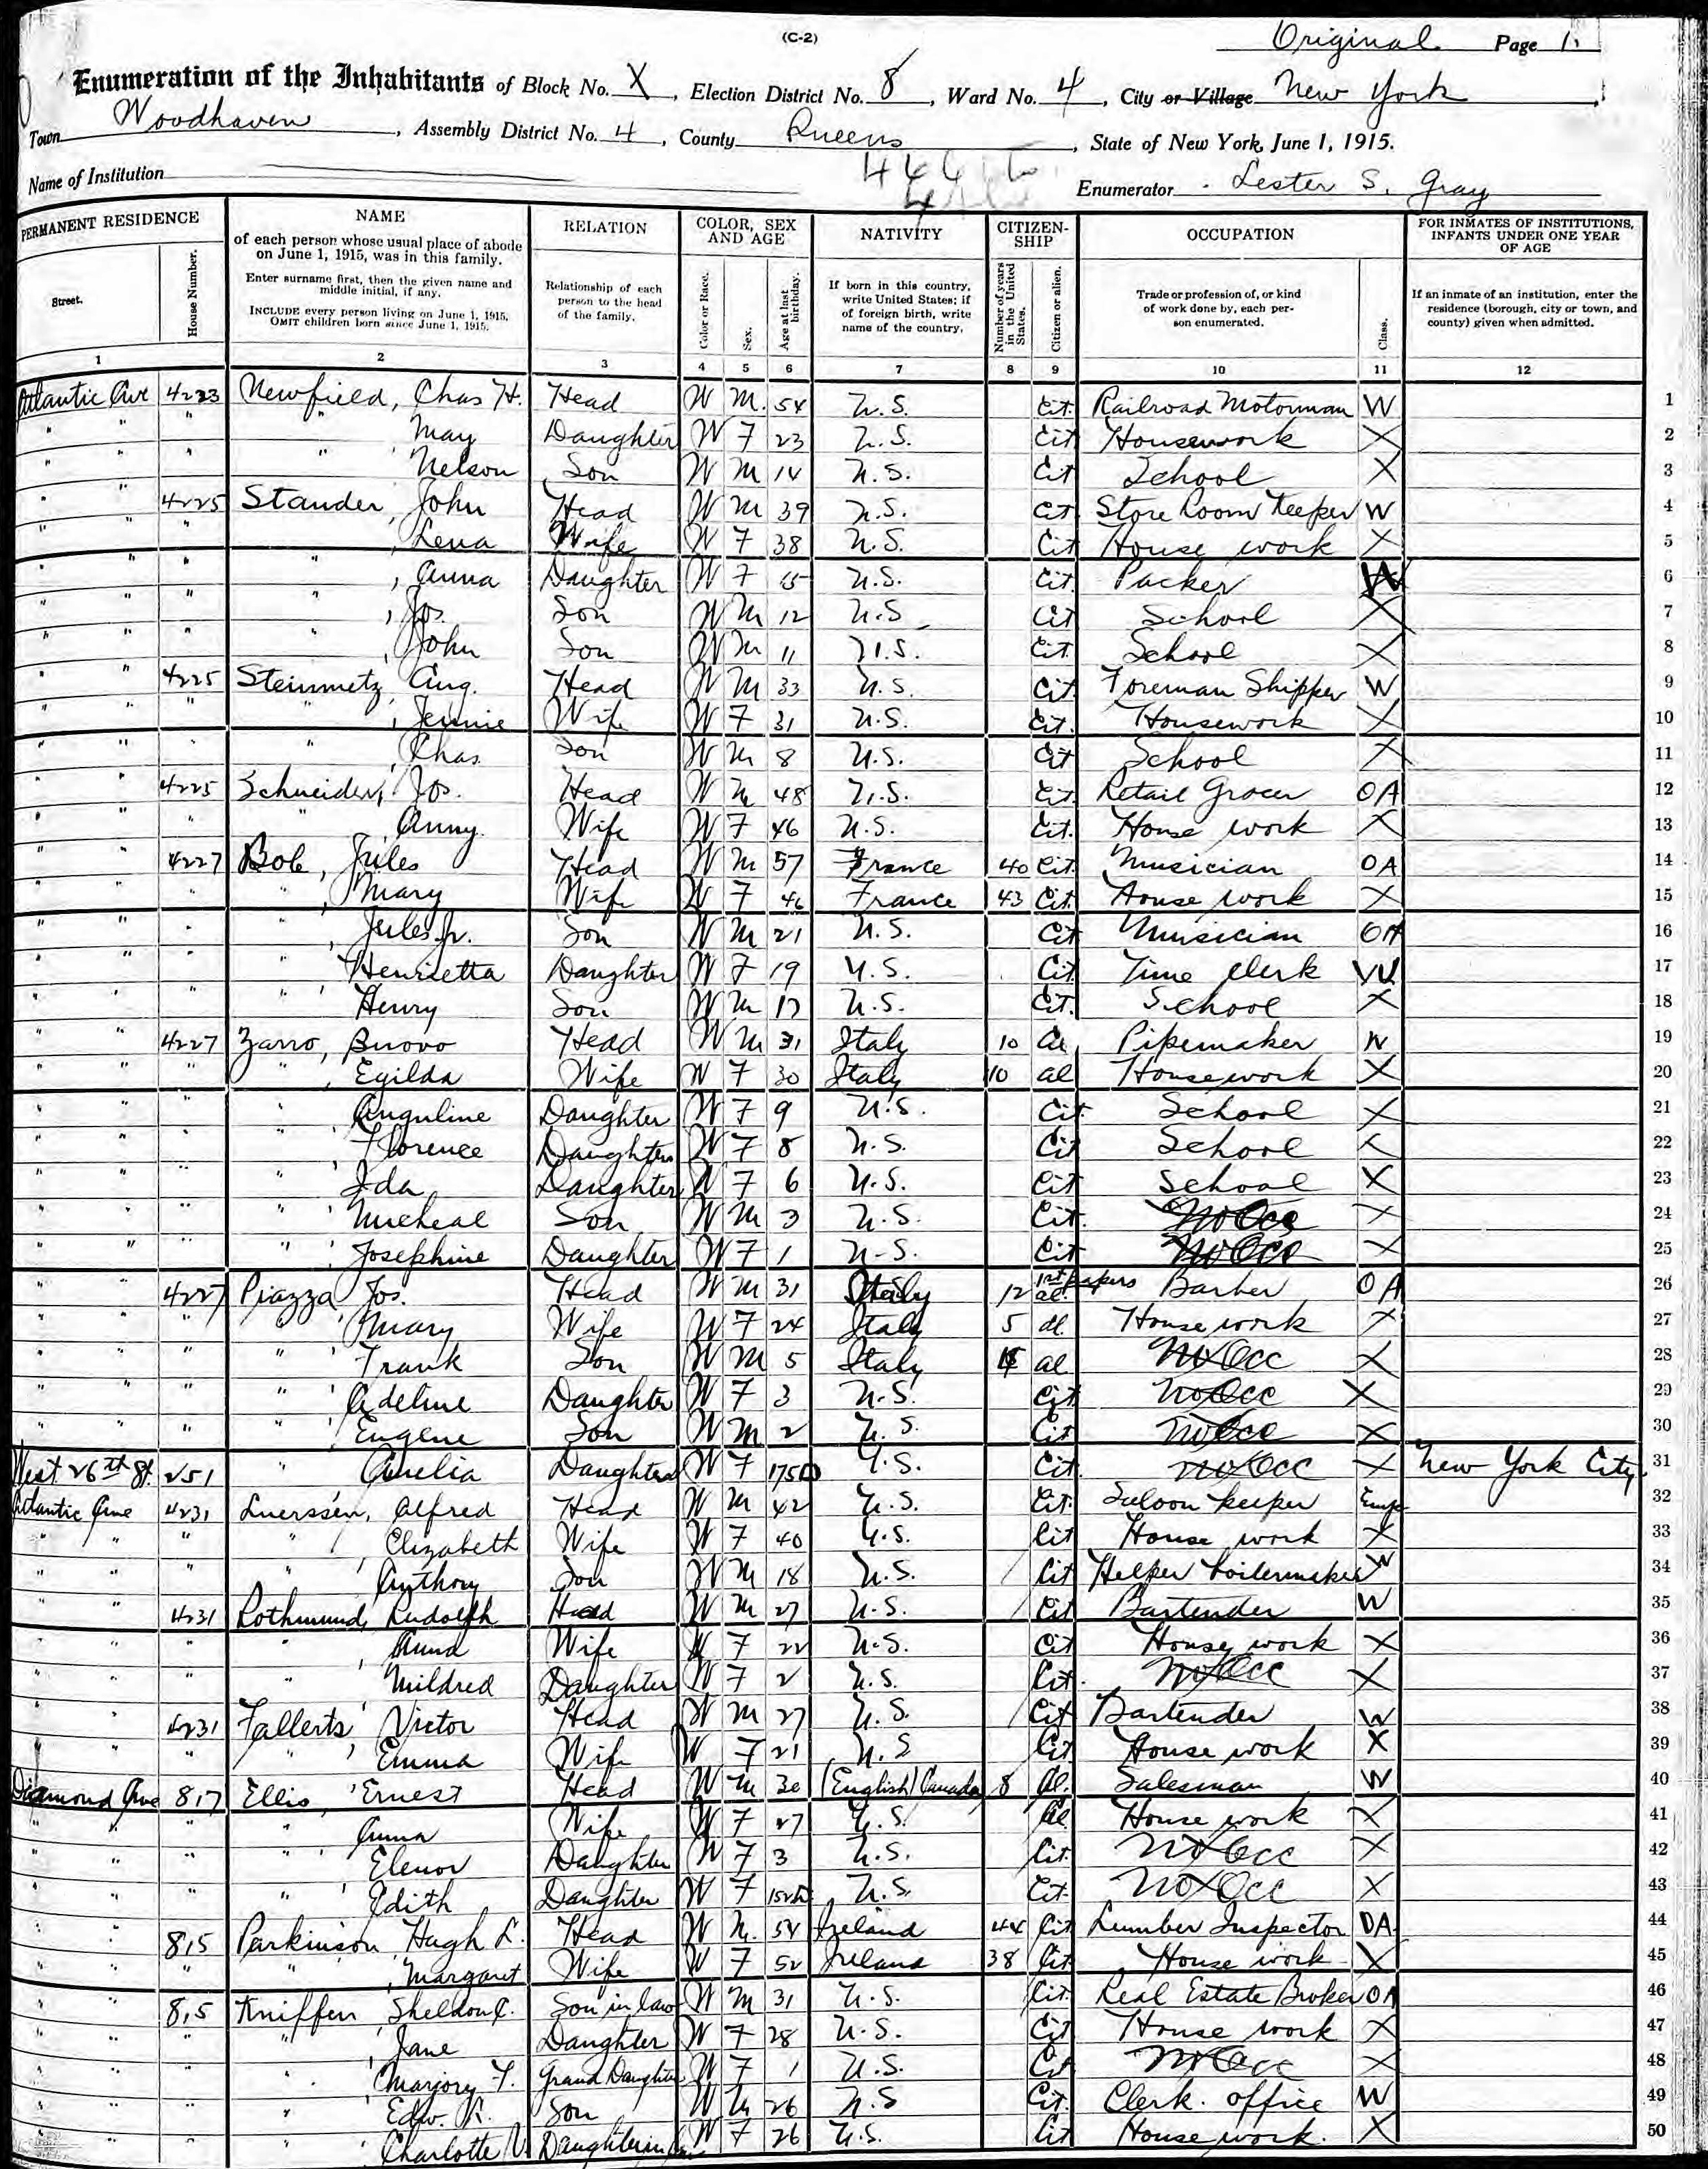 (C-2)
Original Page 1.
Enumeration of the Inhabitants of Block No. X, Election District No. 8, Ward No. 4, City or Village New York
Town Woodhaven, Assembly District No. 4, County Queens, State of New York, June 1, 1915.
Name of Institution Enumerator Lester S. Gray
PERMANENT RESIDENCE NAME RELATION COLOR, SEX AND AGE NATIVITY CITIZEN-SHIP OCCUPATION FOR INMATES OF INSTITUTIONS, INFANTS UNDER ONE YEAR OF AGE
Street. House Number. of each person whose usual place of abode on June 1, 1915, was in this family. Enter surname first, then the given name and middle initial, if any. INCLUDE every person living on June 1, 1915. OMIT children born since June 1, 1915. Relationship of each person to the head of the family. Color or Race. Sex. Age at last birthday. If born in this country, write United States; if of foreign birth, write name of the country. Number of years in the United States. Citizen or alien. Trade or profession of, or kind of work done by, each person enumerated. Class. If an inmate of an institution, enter the residence (borough, city or town, and county) given when admitted.
1 2 3 4 5 6 7 8 9 10 11 12
Atlantic Ave 4223 Newfield, Chas H. Head W M. 54 U.S. Cit. Railroad Motorman W 1
" " " " May Daughter W F 23 U.S. Cit Housework X 2
" " " Nelson Son W M 14 U.S. Cit School X 3
" " 4225 Stander, John Head W M 39 U.S. Cit Store Room Keeper W 4
" " " , Lena Wife W F 38 U.S. Cit House work X 5
" " " " , Anna Daughter W F 15 U.S. Cit. Packer W 6
" " " " , Jos. Son W M 12 U.S. Cit School X 7
" " " " , John Son W M 11 U.S. Cit. School X 8
" " 4225 Steinmetz, Aug. Head W M 33 U.S. Cit Foreman Shipper W 9
" " " " , Jennie Wife W F 31 U.S. Cit. Housework X 10
" " " " , Chas. Son W M 8 U.S. Cit School X 11
" " 4225 Schneider, Jos. Head W M 48 U.S. Cit. Retail Grocer OA 12
" " " " , Anny. Wife W F 46 U.S. Cit. House work X 13
" " 4227 Bole, Jules Head W M 57 France 40 Cit. Musician OA 14
" " " " , Mary Wife W F 46 France 43 Cit. House work X 15
" " " " , Jules Jr. Son W M 21 U.S. Cit Musician OA 16
" " " " Henrietta Daughter W F 19 U.S. Cit Time Clerk W 17
" " " " , Henry Son W M 17 U.S. Cit. School X 18
" " 4227 Zarro, Buovo Head W M 31 Italy 10 al Pipemaker W 19
" " " " , Egilda Wife W F 30 Italy 10 al Housework X 20
" " " " , Anguline Daughter W F 9 U.S. Cit. School X 21
" " " " , Florence Daughter W F 8 U.S. Cit School X 22
" " " " , Ida Daughter W F 6 U.S. Cit School X 23
" " " " , Micheal Son W M 3 U.S. Cit. No Occ X 24
" " " " , Josephine Daughter W F 1 U.S. Cit No Occ X 25
" 4227 Piazza, Jos. Head W M 31 Italy 12 1st papers al. Barber OA 26
" " " " , Mary Wife W F 24 Italy 5 al. House work X 27
" " " " , Frank Son W M 5 Italy al No Occ X 28
" " " " , Adeline Daughter W F 3 U.S. Cit No Occ X 29
" " " " , Eugene Son W M 2 U.S. Cit No Occ X 30
West 26th St. 251 " Amelia Daughter W F U.S. Cit. No Occ X New York City. 31
Atlantic Ave 4231 Luerssen, Alfred Head W M 42 U.S. Cit. Saloon keeper Emp 32
" " " " , Elizabeth Wife W F 40 U.S. Cit House work X 33
" " " " , Anthony Son W M 18 U.S. Cit Helper boilermaker W 34
" " 4231 Rothmund, Rudolph Head W M 27 U.S. Cit Bartender W 35
" " " " , Anna Wife W F 22 U.S. Cit House work X 36
" " " " , Mildred Daughter W F 2 U.S. Cit. No Occ X 37
" " 4231 Fallerts, Victor Head W M 27 U.S. Cit Bartender W 38
" " " " , Emma Wife W F 21 U.S Cit House work X 39
Diamond Ave 817 Ellis, Ernest Head W M 30 (English) Canada 8 Al. Salesman W 40
" " " " , Anna Wife W F 27 U.S. Al. House work X 41
" " " " , Elenor Daughter W F 3 U.S. Cit. No Occ X 42
" " " " , Edith Daughter W F U.S. Cit. No Occ X 43
" " 815 Parkinson, Hugh L. Head W M. 54 Ireland 44 Cit Lumber Inspector OA 44
" " " " , Margaret Wife W F 52 Ireland 38 Cit House work X 45
" " 815 Kniffen, Sheldon C. Son in law W M 31 U.S. Cit. Real Estate Broker OA 46
" " " , Jane Daughter W F 28 U.S. Cit House work X 47
" " " , Marjory F. Grand Daughter W F 1 U.S. Cit No Occ X 48
" " " , Edw. R. Son W M 26 U.S Cit. Clerk. office W 49
" " " , Charlotte V. Daughter in law W F 26 U.S. Cit House work. X 50